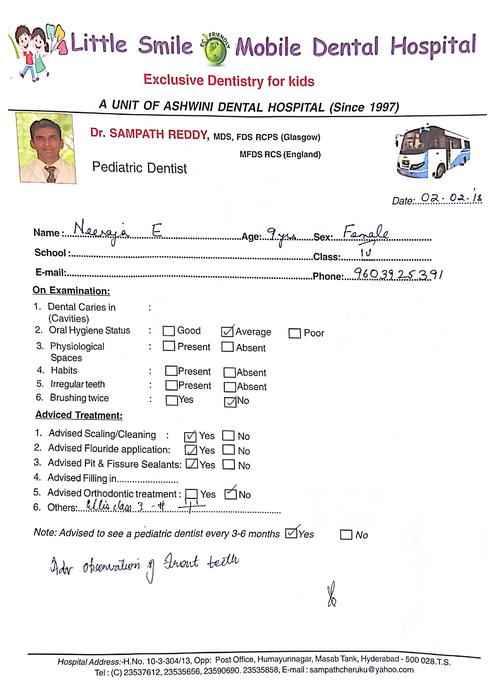 Little Smile ECO FRIENDLY Mobile Dental Hospital
Exclusive Dentistry for kids
A UNIT OF ASHWINI DENTAL HOSPITAL (Since 1997)
Dr. SAMPATH REDDY, MDS, FDS RCPS (Glasgow)
MFDS RCS (England)
Pediatric Dentist
Date: 02.02.18
Name: Neeraja E Age: 9 yrs Sex: Female
School: Class: IV
E-mail: Phone: 9603925391
On Examination:
1. Dental Caries in :
(Cavities)
2. Oral Hygiene Status : Good Average Poor
3. Physiological : Present Absent
Spaces
4. Habits : Present Absent
5. Irregular teeth : Present Absent
6. Brushing twice : Yes No
Adviced Treatment:
1. Advised Scaling/Cleaning : Yes No
2. Advised Flouride application: Yes No
3. Advised Pit & Fissure Sealants: Yes No
4. Advised Filling in
5. Advised Orthodontic treatment : Yes No
6. Others: Ellis class 3
Note: Advised to see a pediatric dentist every 3-6 months Yes No
Adv observation of front teeth
Hospital Address:-H.No. 10-3-304/13, Opp: Post Office, Humayunnagar, Masab Tank, Hyderabad - 500 028.T.S.
Tel : (C) 23537612, 23535656, 23590690. 23535858, E-mail : sampathcheruku@yahoo.com